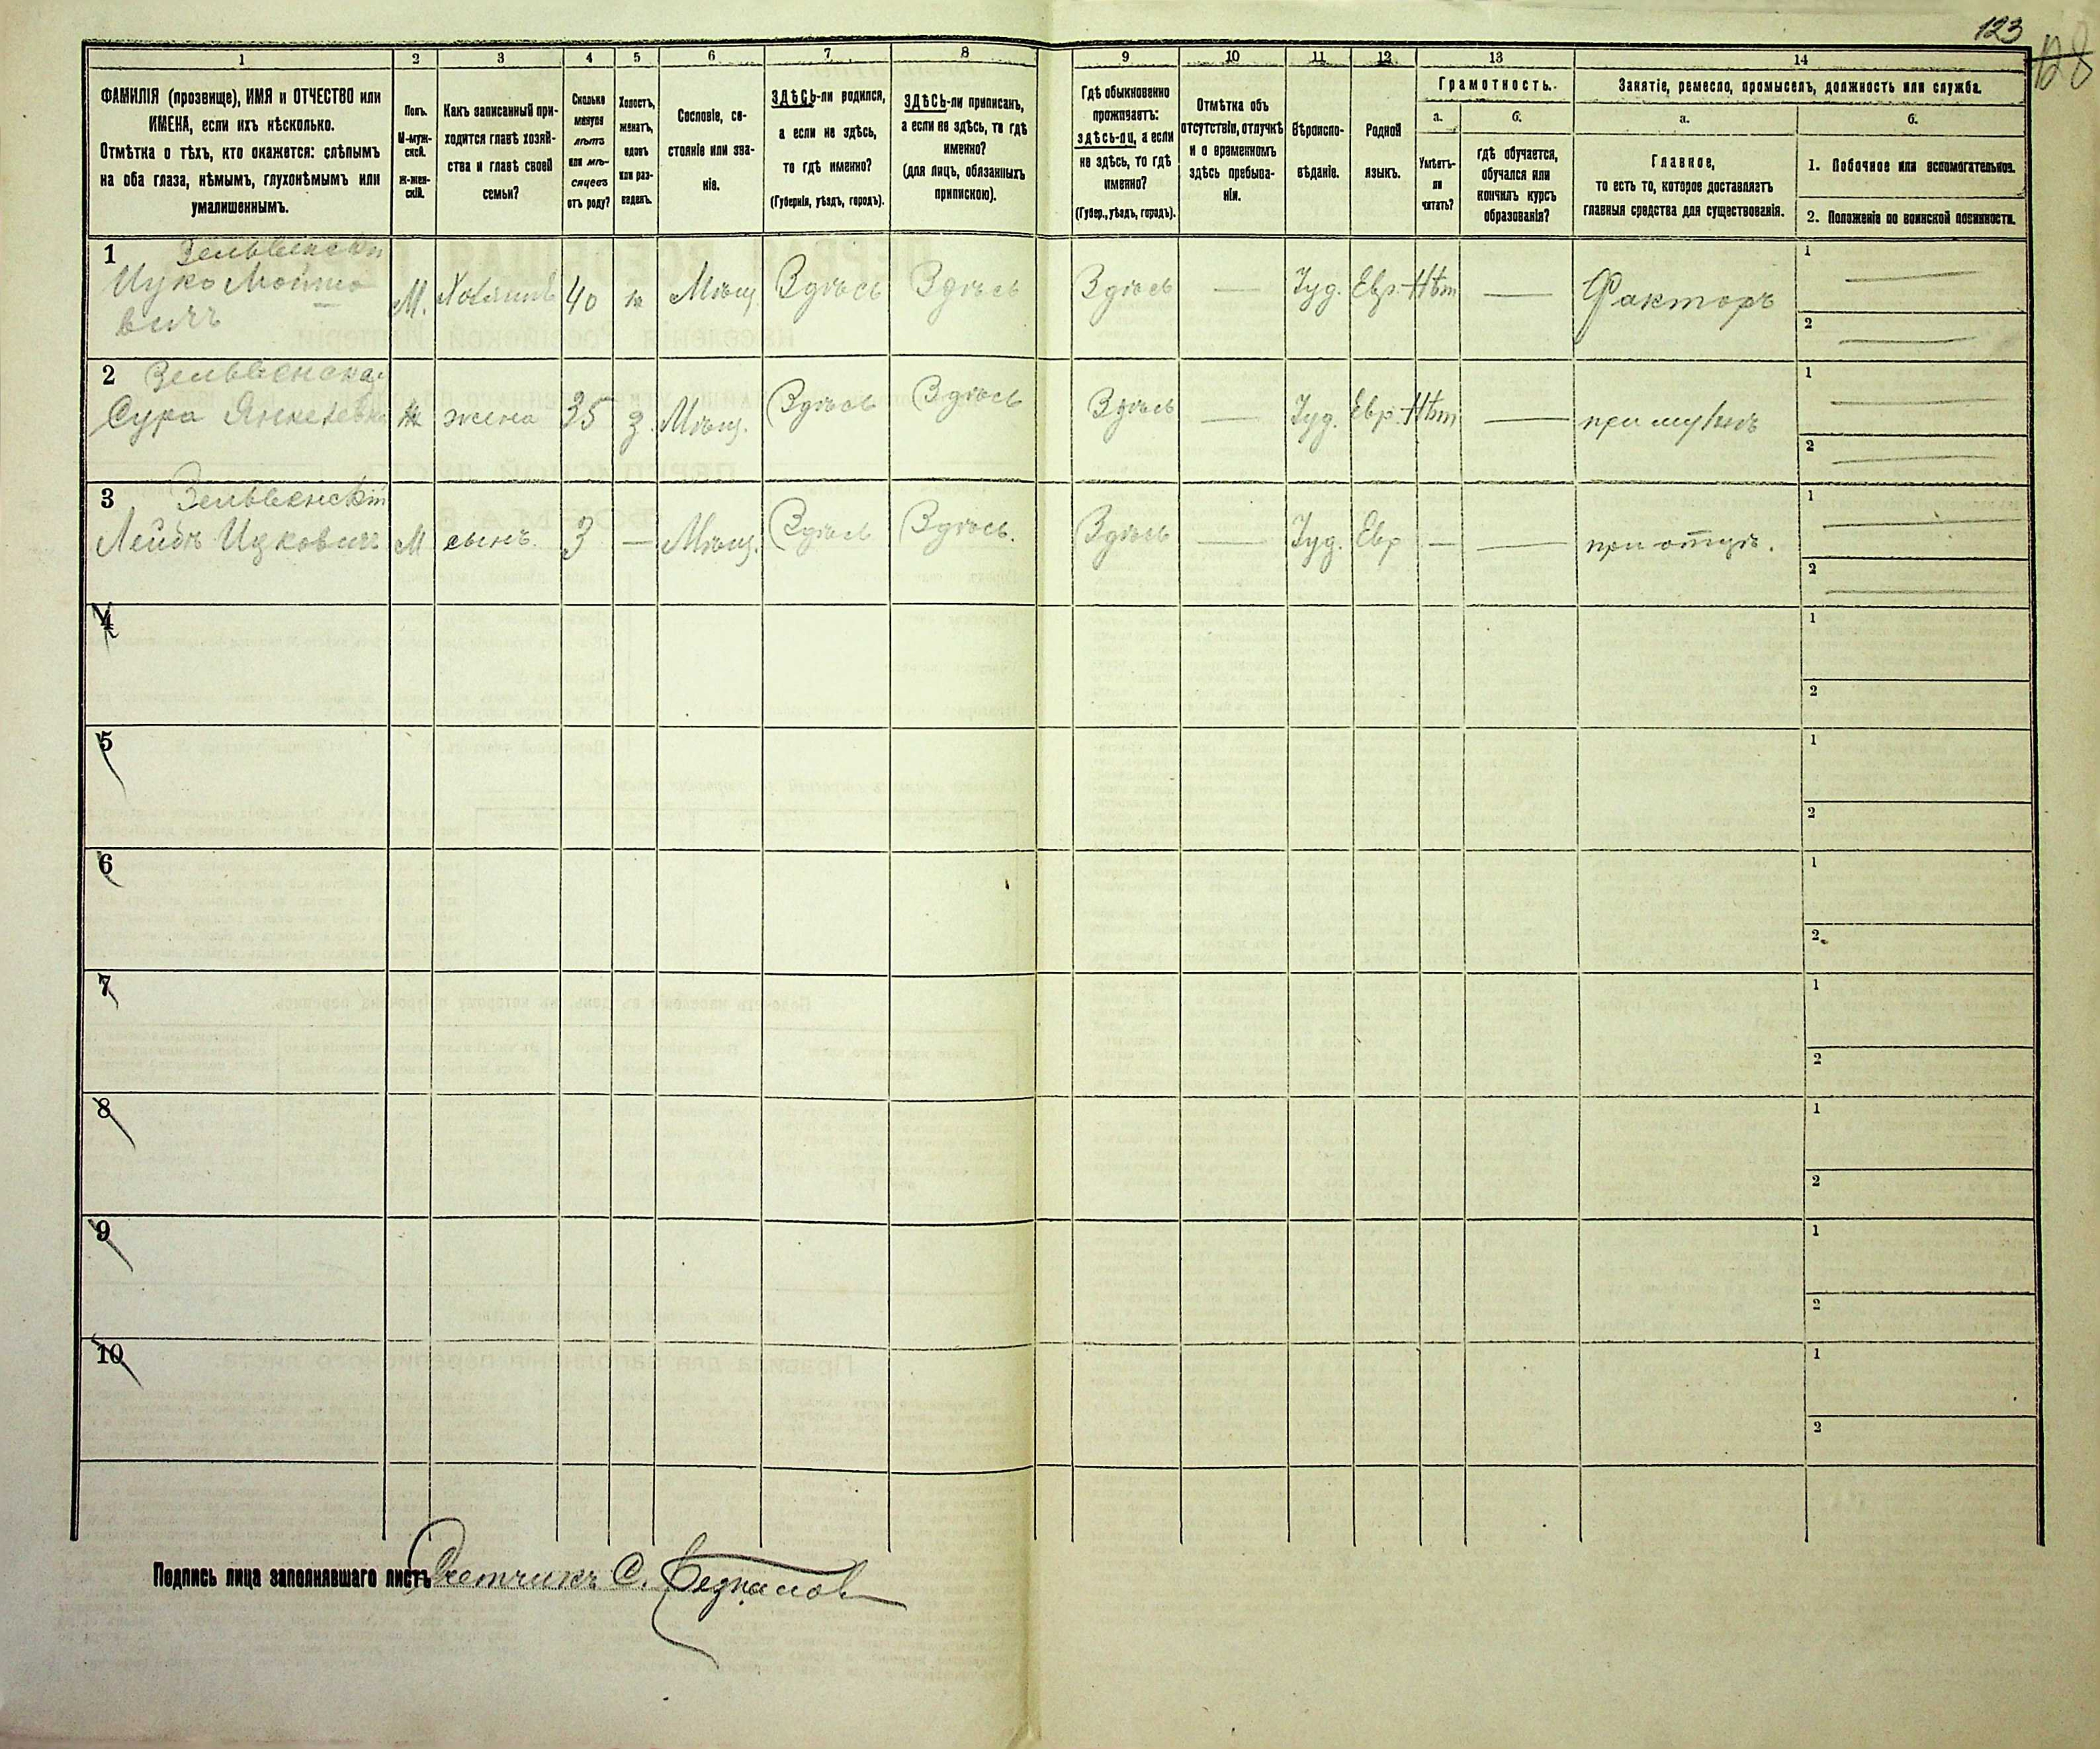 123
128
1 2 3 4 5 6 7 8 9 10 11 12 13 14
ФАМИЛІЯ (прозвище), ИМЯ и ОТЧЕСТВО или
ИМЕНА, если ихъ нѣсколько.
Отмѣтка о тѣхъ, кто окажется: слѣпымъ
на оба глаза, нѣмымъ, глухонѣмымъ или
умалишеннымъ.
Полъ.
М-муж-
ской.
Ж-жен-
скій.
Какъ записанный при-
ходится главѣ хозяй-
ства и главѣ своей
семьи?
Сколько
минуло
лѣтъ
или мѣ-
сяцевъ
отъ роду?
Холостъ,
женатъ,
вдовъ
или раз-
веденъ.
Сословіе, со-
стояніе или зва-
ніе.
ЗДѢСЬ-ли родился,
а если не здѣсь,
то гдѣ именно?
(Губернія, уѣздъ, городъ).
ЗДѢСЬ-ли приписанъ,
а если не здѣсь, то гдѣ
именно?
(для лицъ, обязанныхъ
припискою).
Гдѣ обыкновенно
проживаетъ:
здѣсь-ли, а если
не здѣсь, то гдѣ
именно?
(Губер., уѣздъ, городъ).
Отмѣтка объ
отсутствіи, отлучкѣ
и о временномъ
здѣсь пребыва-
ніи.
Вѣроиспо-
вѣданіе.
Родной
языкъ.
Грамотность.
а.
Умѣетъ-
ли
читать?
б.
гдѣ обучается,
обучался или
кончилъ курсъ
образованія?
Занятіе, ремесло, промыселъ, должность или служба.
а.
Главное,
то есть то, которое доставляетъ
главныя средства для существованія.
б.
1. Побочное или вспомогательное.
2. Положеніе по воинской повинности.
1 Зельвенскій
Ицко Мовшо
вичъ М. Хозяинъ 40 ж Мѣщ. Здѣсь Здѣсь Здѣсь — Іуд. Евр. Нѣт — Факторъ 1 —
2 —
2 Зельвенская
Сура Янкелевна ж жена 35 з. Мѣщ. Здѣсь Здѣсь Здѣсь — Іуд. Евр. Нѣт — при мужѣ 1 —
2 —
3 Зельвенскій
Лейбъ Ицковичъ М сынъ 3 — Мѣщ. Здѣсь Здѣсь. Здѣсь — Іуд. Евр — — при отцѣ. 1 —
2 —
4 1
2
5 1
2
6 1
2
7 1
2
8 1
2
9 1
2
10 1
2
Подпись лица заполнявшаго листъ Счетчикъ С.